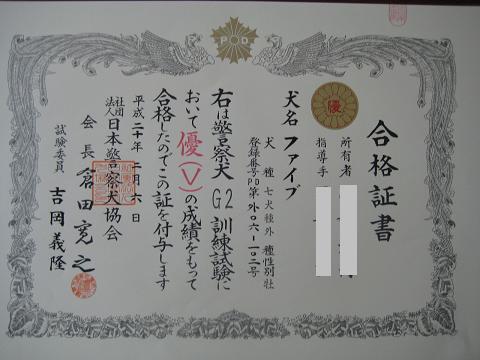 PD
合格証書
優
所有者
指導手
犬名 ファイブ
犬種 七犬種外 種性別 牡
登録番号PD第外06-102号
右は警察犬G2訓練試験に
おいて優(V)の成績をもって
合格したのでこの証を付与します
平成二十年二月六日
社団法人 日本警察犬協会
会長 倉田寛之
試験委員 吉岡義隆